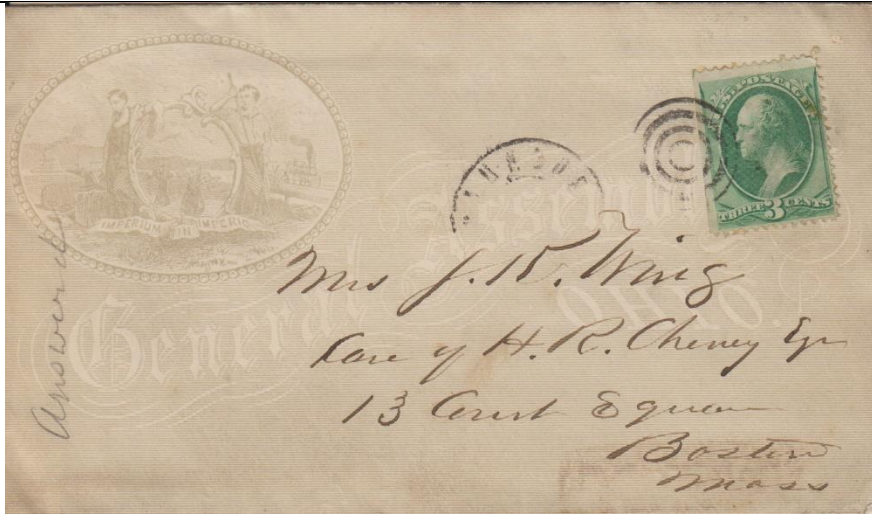 IMPERIUM IN IMPERIO
General Assembly
OHIO.
POSTAGE
THREE 3 CENTS
Answered
Mrs J. K. Wing
Care of H. R. Cheney Esqr
13 Court Square
Boston
Mass